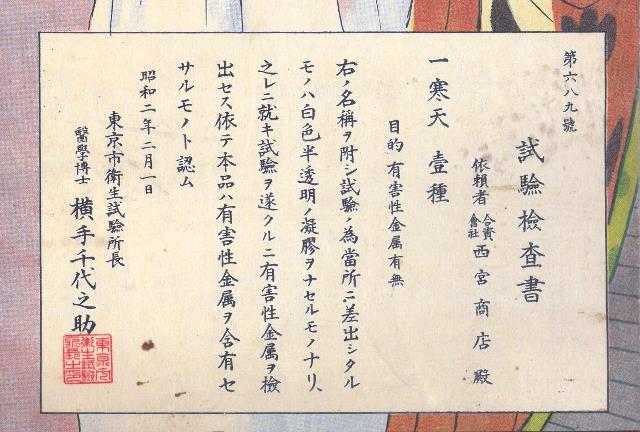 第六八九號
試驗檢查書
依賴者 合資會社 西宮商店 殿
一寒天 壹種
目的 有害性金属有無
右ノ名稱ヲ附シ試驗ノ為當所ニ差出シタル
モノハ白色半透明ノ凝膠ヲナセルモノナリ、
之レニ就キ試驗ヲ遂クルニ有害性金属ヲ檢
出セス依テ本品ハ有害性金属ヲ含有セ
サルモノト認ム
昭和二年二月一日
東京市衛生試驗所長
醫學博士 横手千代之助